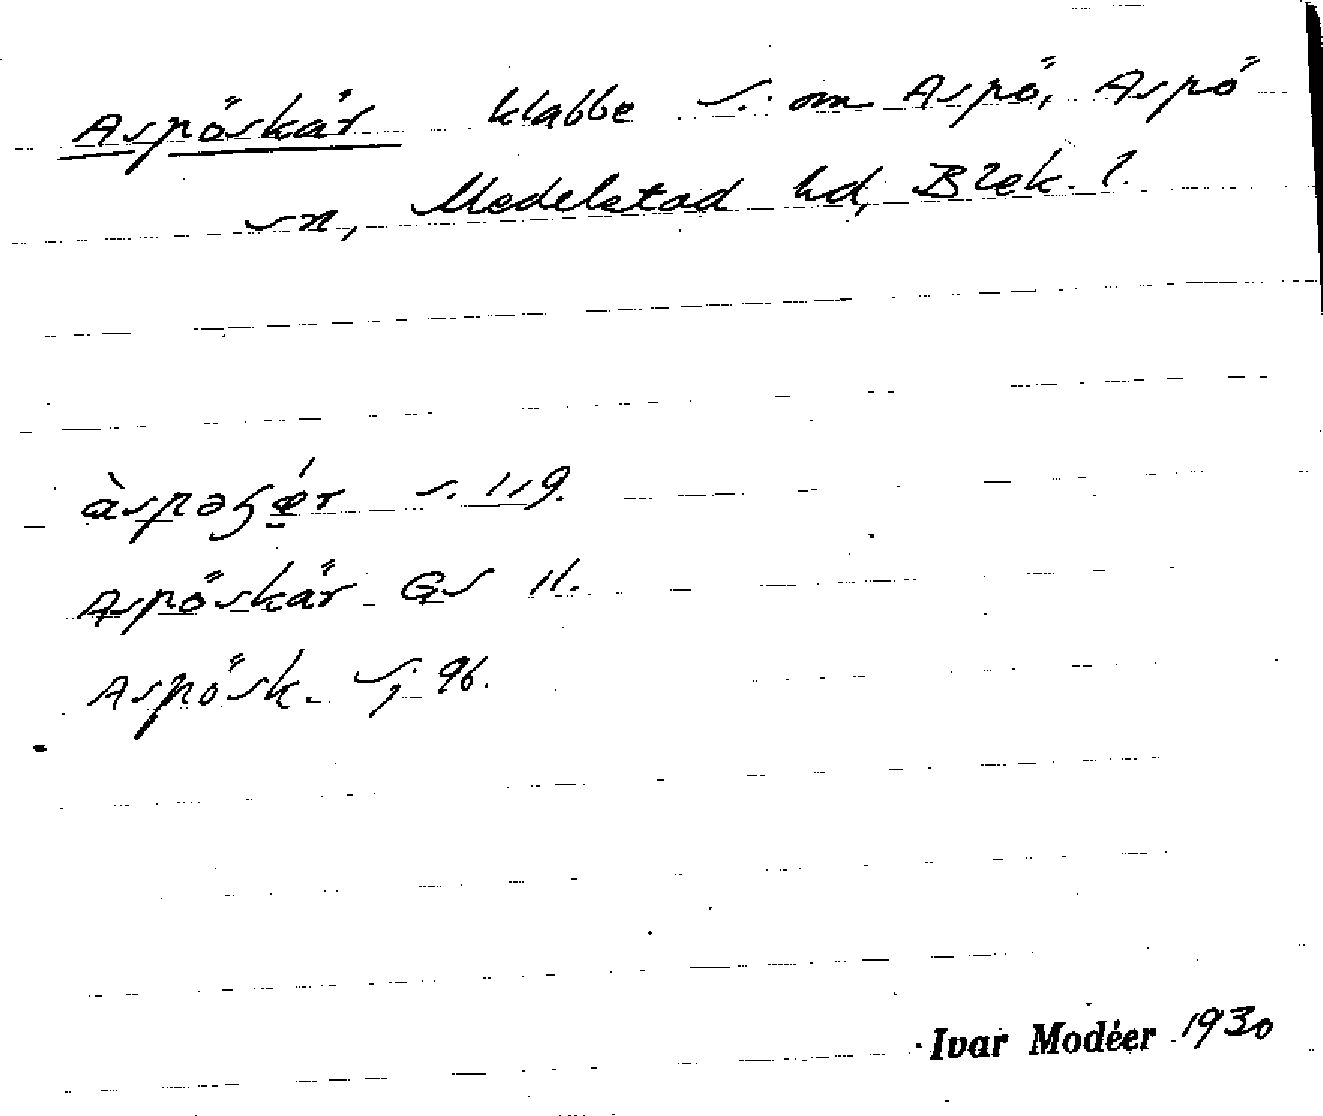 Aspöskär klabbe s. om Aspö, Aspö
sn, Medelstad hd, Blek. l.
àspəʂǽr s. 119.
Aspöskär GS 11.
Aspösk. Sj 96.
Ivar Modéer 1930